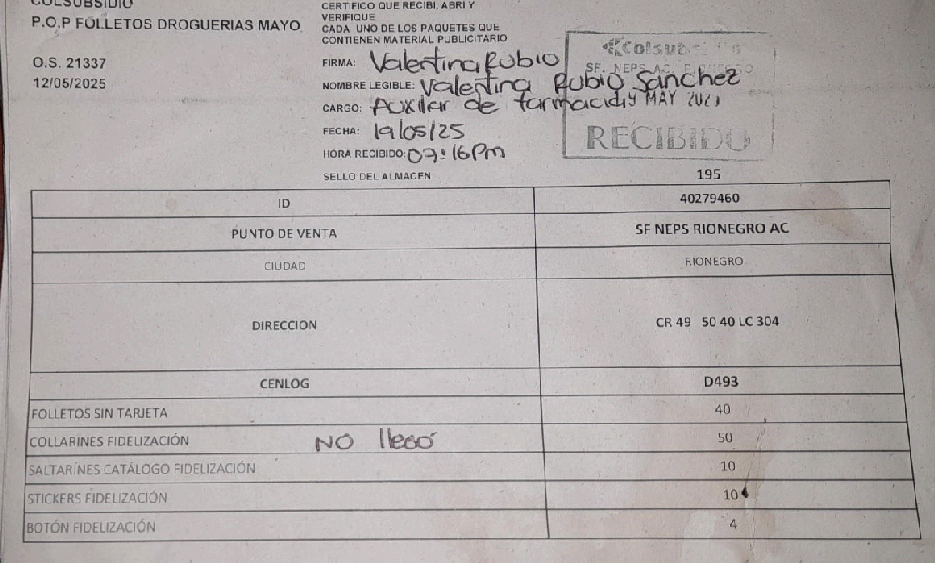 COLSUBSIDIO
P.O.P FOLLETOS DROGUERIAS MAYO
O.S. 21337
12/05/2025
CERTIFICO QUE RECIBI, ABRI Y
VERIFIQUE
CADA UNO DE LOS PAQUETES QUE
CONTIENEN MATERIAL PUBLICITARIO
FIRMA: Valentina Rubio
NOMBRE LEGIBLE: Valentina Rubio Sanchez
CARGO: Auxiliar de farmacia
FECHA: 19/05/25
HORA RECIBIDO: 07:16 Pm
SELLO DEL ALMACEN
Colsubsidio
SF. NEPS AC.
19 MAY
RECIBIDO
195
ID 40279460
PUNTO DE VENTA SF NEPS RIONEGRO AC
CIUDAD RIONEGRO
DIRECCION CR 49 50 40 LC 304
CENLOG D493
FOLLETOS SIN TARJETA 40
COLLARINES FIDELIZACIÓN NO llegó 50
SALTARINES CATÁLOGO FIDELIZACIÓN 10
STICKERS FIDELIZACIÓN 10
BOTÓN FIDELIZACIÓN 4